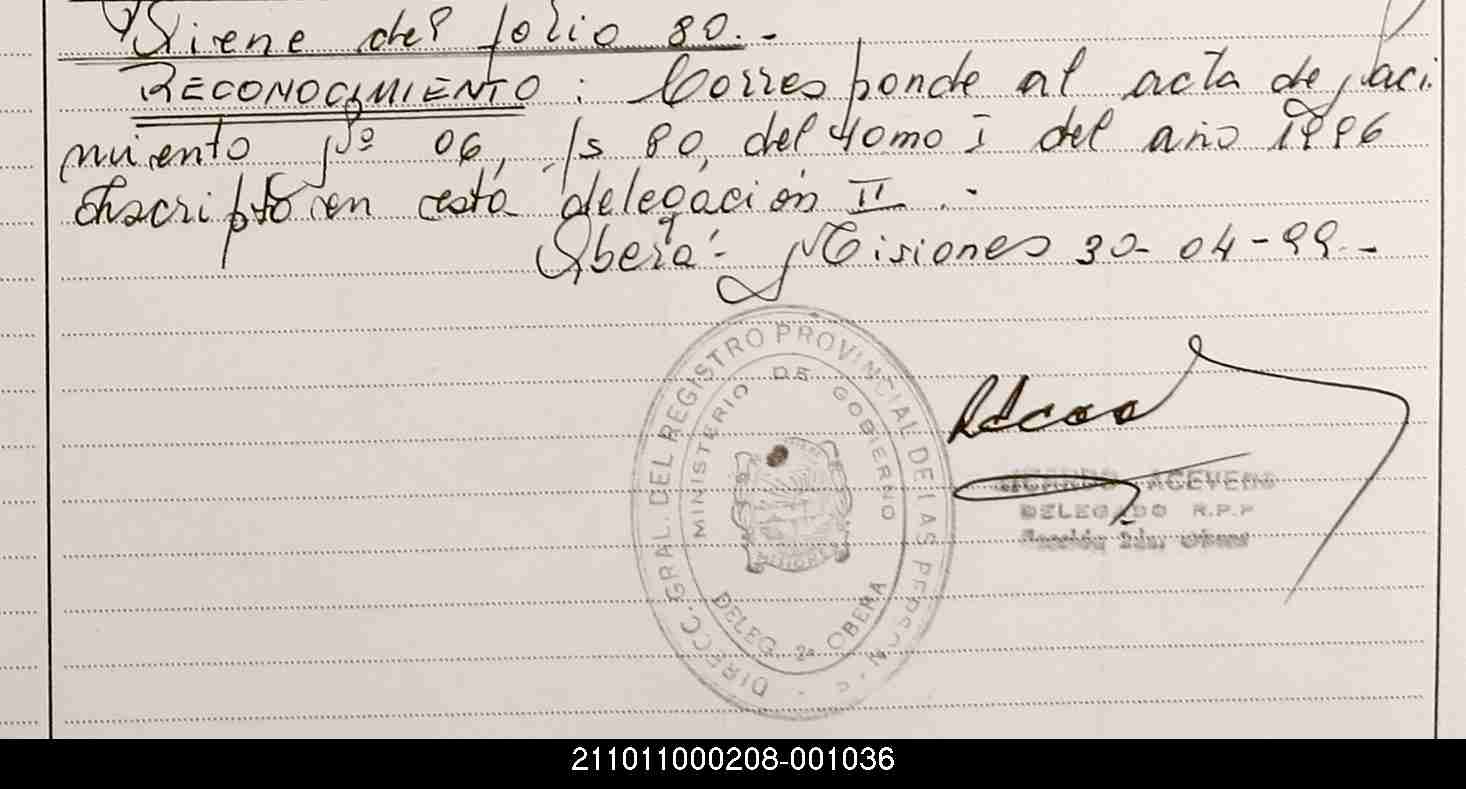 Viene del folio 80.-
RECONOCIMIENTO : Corresponde al acta de naci
miento Nº 06, fs 80, del tomo I del año 1996
inscripto en esta delegación II .-
Oberá - Misiones 30-04-99.-
DIRECC. GRAL. DEL REGISTRO PROVINCIAL DE LAS PERSONAS
MINISTERIO DE GOBIERNO
DELEG. 2a OBERA
RICARDO ACEVEDO
DELEGADO R.P.P
Sección 2da. Oberá
211011000208-001036